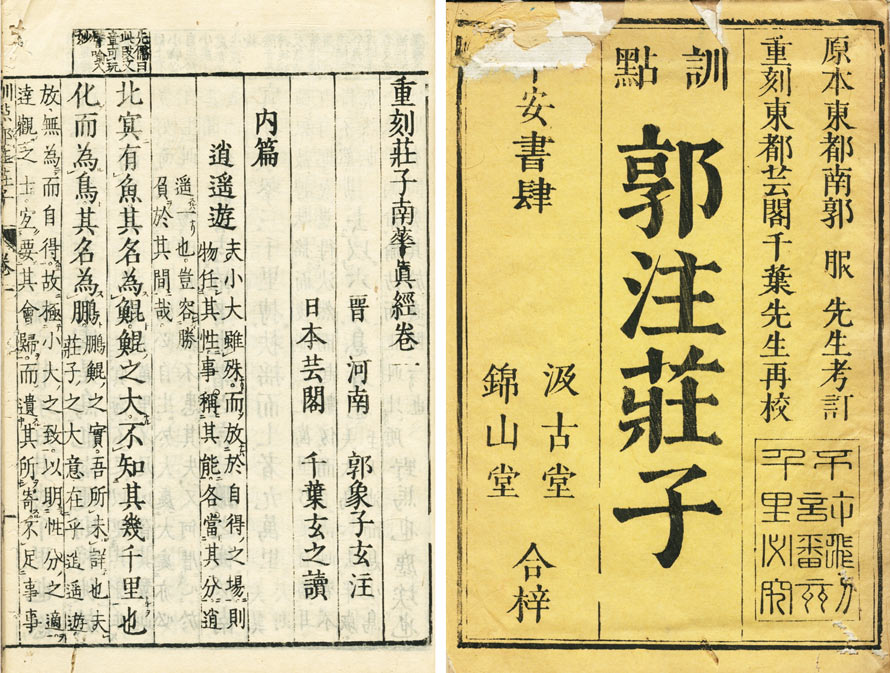 原本東都南郭 服 先生考訂
重刻東都芸閣千葉先生再校
訓點
郭注莊子
安書肆
汲古堂
錦山堂
合梓
重刻莊子南華眞經卷一
晉 河南 郭象子玄注
日本芸閣 千葉玄之讀
内篇
逍遥遊
夫小大雖殊而放於自得之場則
物任其性事稱其能各當其分逍
遥一也豈容勝
負於其間哉
北冥有魚其名為鯤鯤之大不知其幾千里也
化而為鳥其名為鵬
鵬鯤之實吾所未詳也夫
莊子之大意在乎逍遥遊
放無為而自得故極小大之致以明性分之適
達觀之士宜要其會歸而遺其所寄不足事事
先儒曰
此段文
章可玩
譬喻入
妙